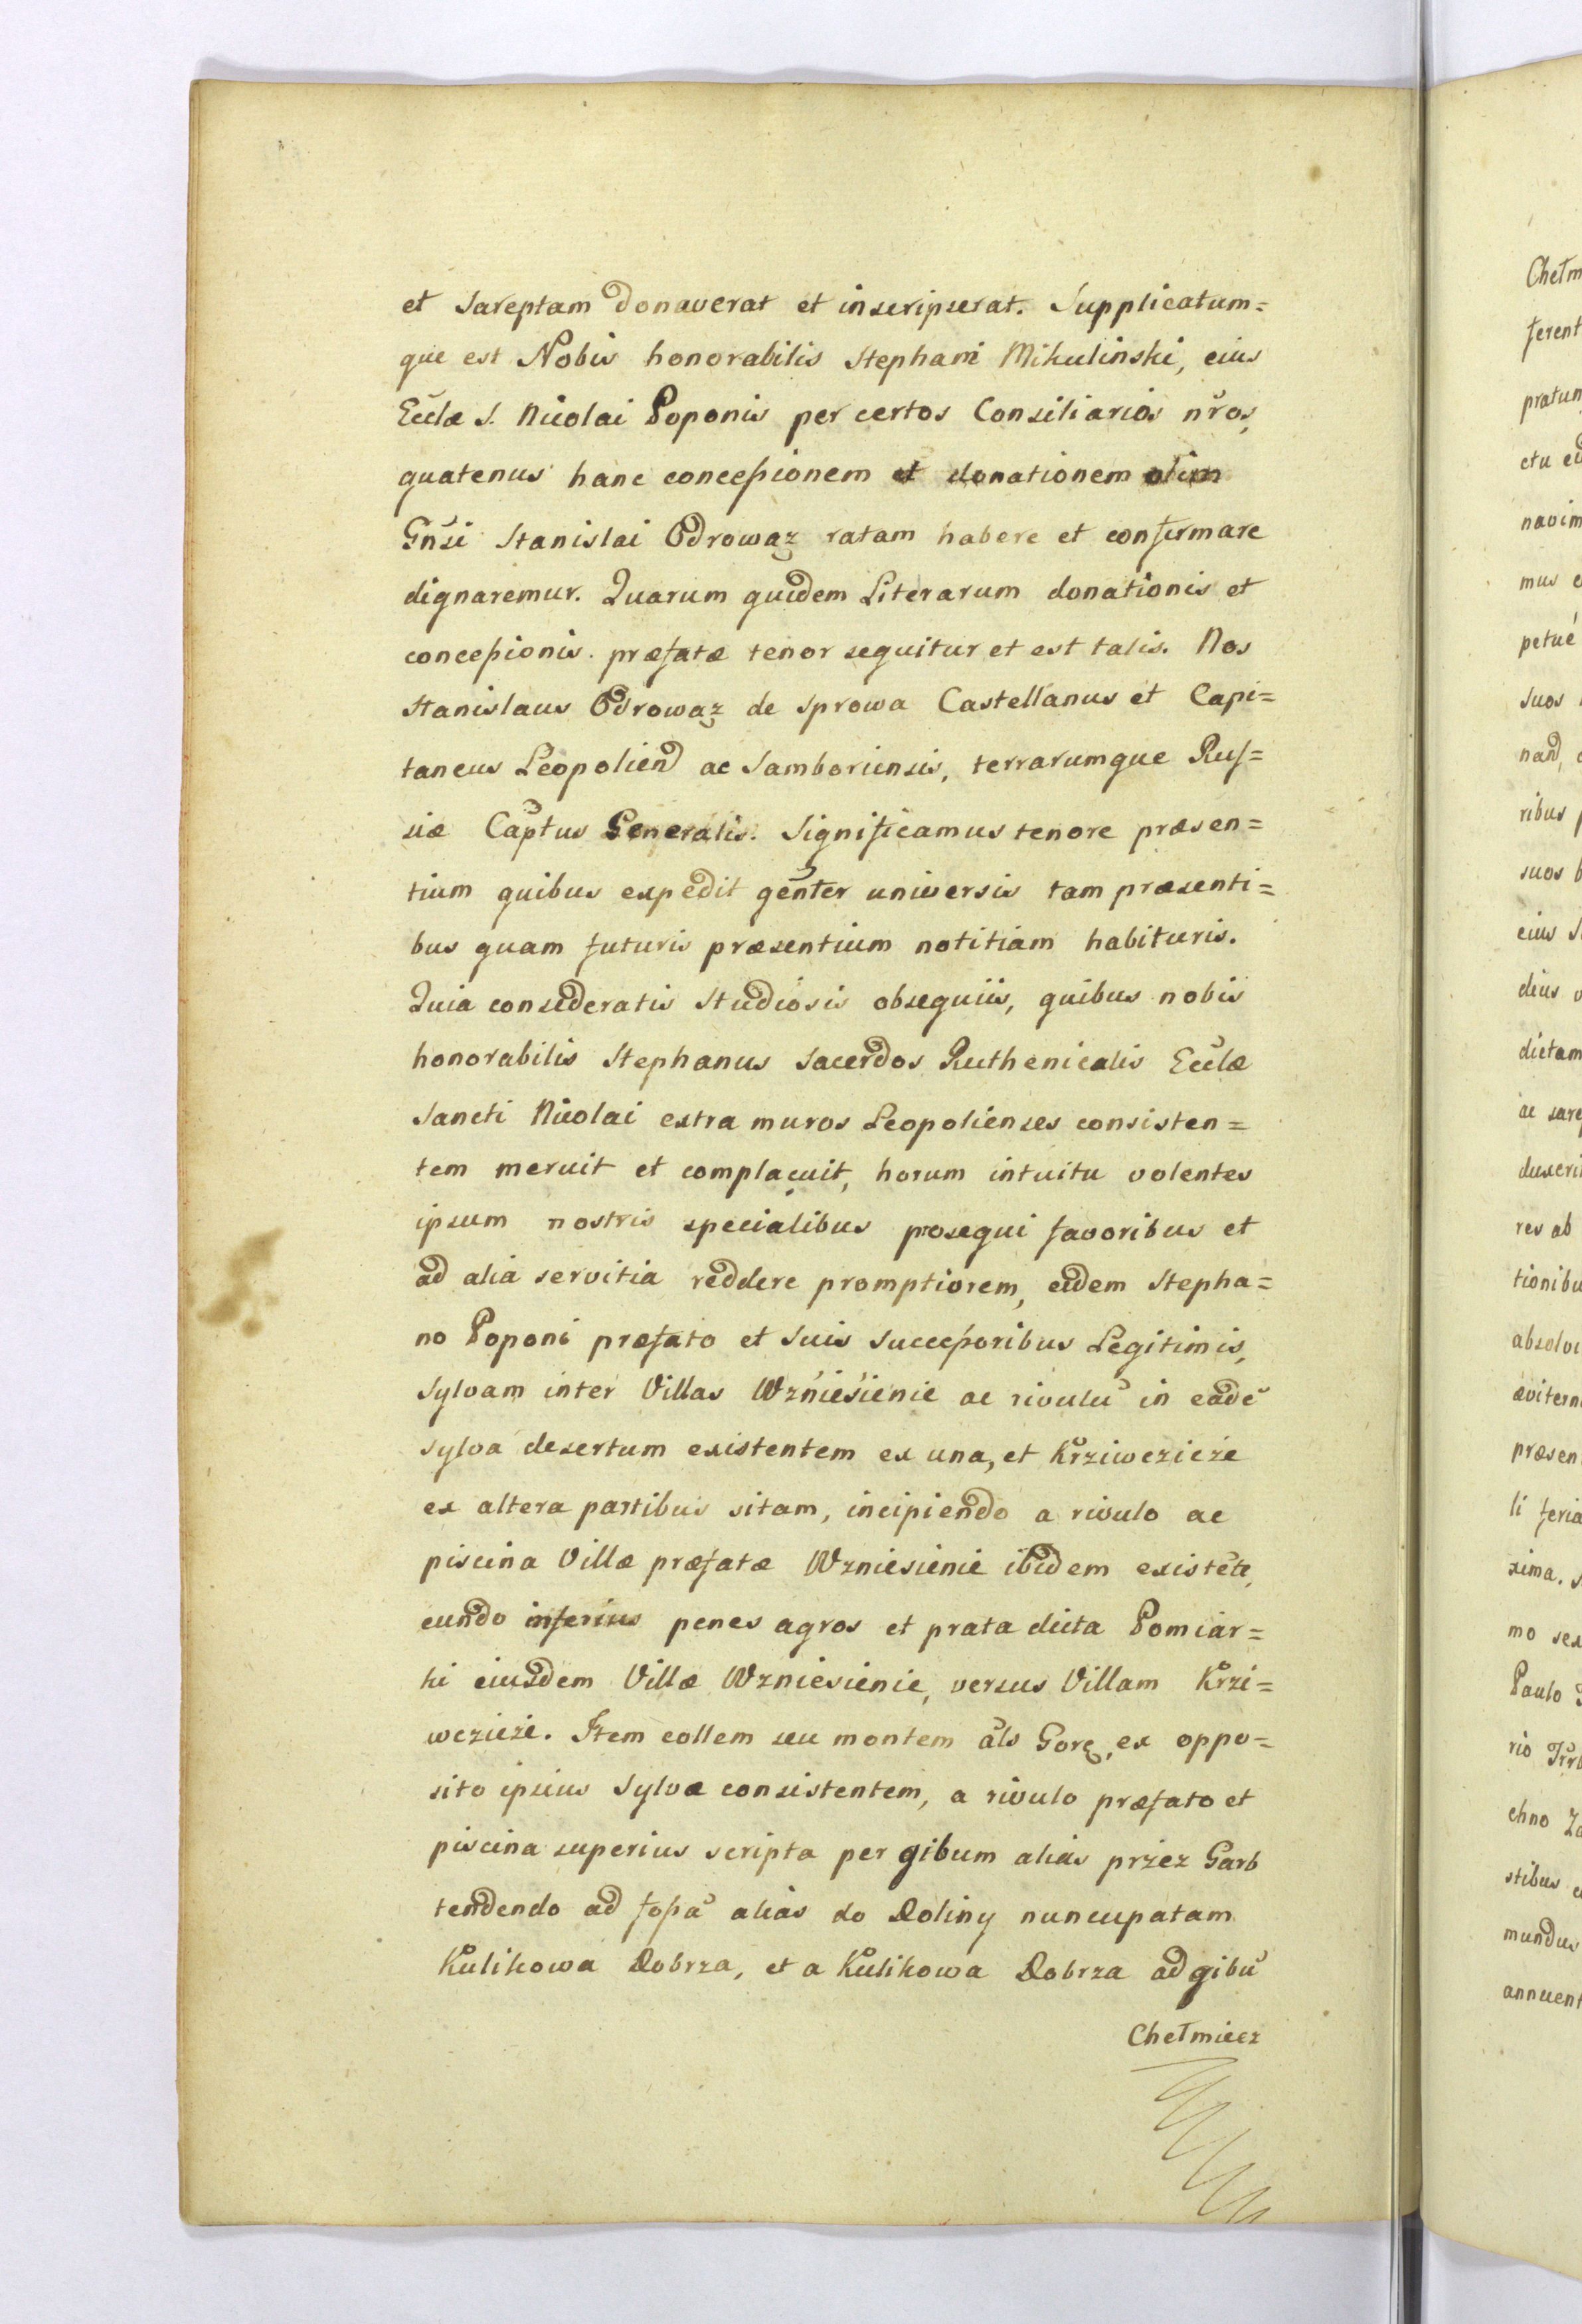 et Sareptam donaverat et inscripserat. Supplicatum=
que est Nobis honorabilis Stephani Mikulinski, eius
Ecclæ S. Nicolai Poponis per certos Consiliarios nr̃os,
quatenus hanc concessionem et donationem olim
Gñsi Stanislai Odrowąz ratam habere et confirmare
dignaremur. Quarum quidem Literarum donationis et
concessionis præfatæ tenor sequitur et est talis. Nos
Stanislaus Odrowąz de Sprowa Castellanus et Capi=
taneus Leopolien̄ ac Samboriensis, terrarumque Rus=
siæ Capt̃us Generalis. Significamus tenore præsen=
tium quibus expedit gen̄ter universis tam præsenti=
bus quam futuris præsentium notitiam habituris.
Quia consideratis Studiosis obsequiis, quibus nobis
honorabilis Stephanus Sacerdos Ruthenicalis Ecclæ
Sancti Nicolai extra muros Leopolienses consisten=
tem meruit et complacuit, horum intuitu volentes
ipsum nostris specialibus prosequi favoribus et
ad alia servitia reddere promptiorem, eidem Stepha=
no Poponi præfato et suis Successoribus Legitimis,
Sylvam inter Villas Wzniesienie ac rivulũ in eadẽ
sylva desertum existentem ex una, et Krziwczicze
ex altera partibus sitam, incipiendo a rivulo ac
piscina Villæ præfatæ Wzniesienie ibidem existẽte,
eundo inferius penes agros et prata dicta Pomiar=
ki eiusdem Villæ Wzniesienie, versus Villam Krzi=
wczicze. Item collem seu montem al̃s Gorę, ex oppo=
sito ipsius Sylvæ consistentem, a rivulo præfato et
piscina superius scripta per gibum alias przez Garb
tendendo ad fossã alias do Doliny nuncupatam
Kulikowa Dobrza, et a Kulikowa Dobrza ad gibũ
Chełmiecz
Chełm
ferent
pratum
ctu
navim
mus
petué
suos
nand,
ribus
suos
eius
dius
dictam
ac
duxeri
res ab
tionibu
absolvi
æviterni
præsen
li feria
xima.
mo sex
Paulo
rio
chno
stibus
mundus
annuent